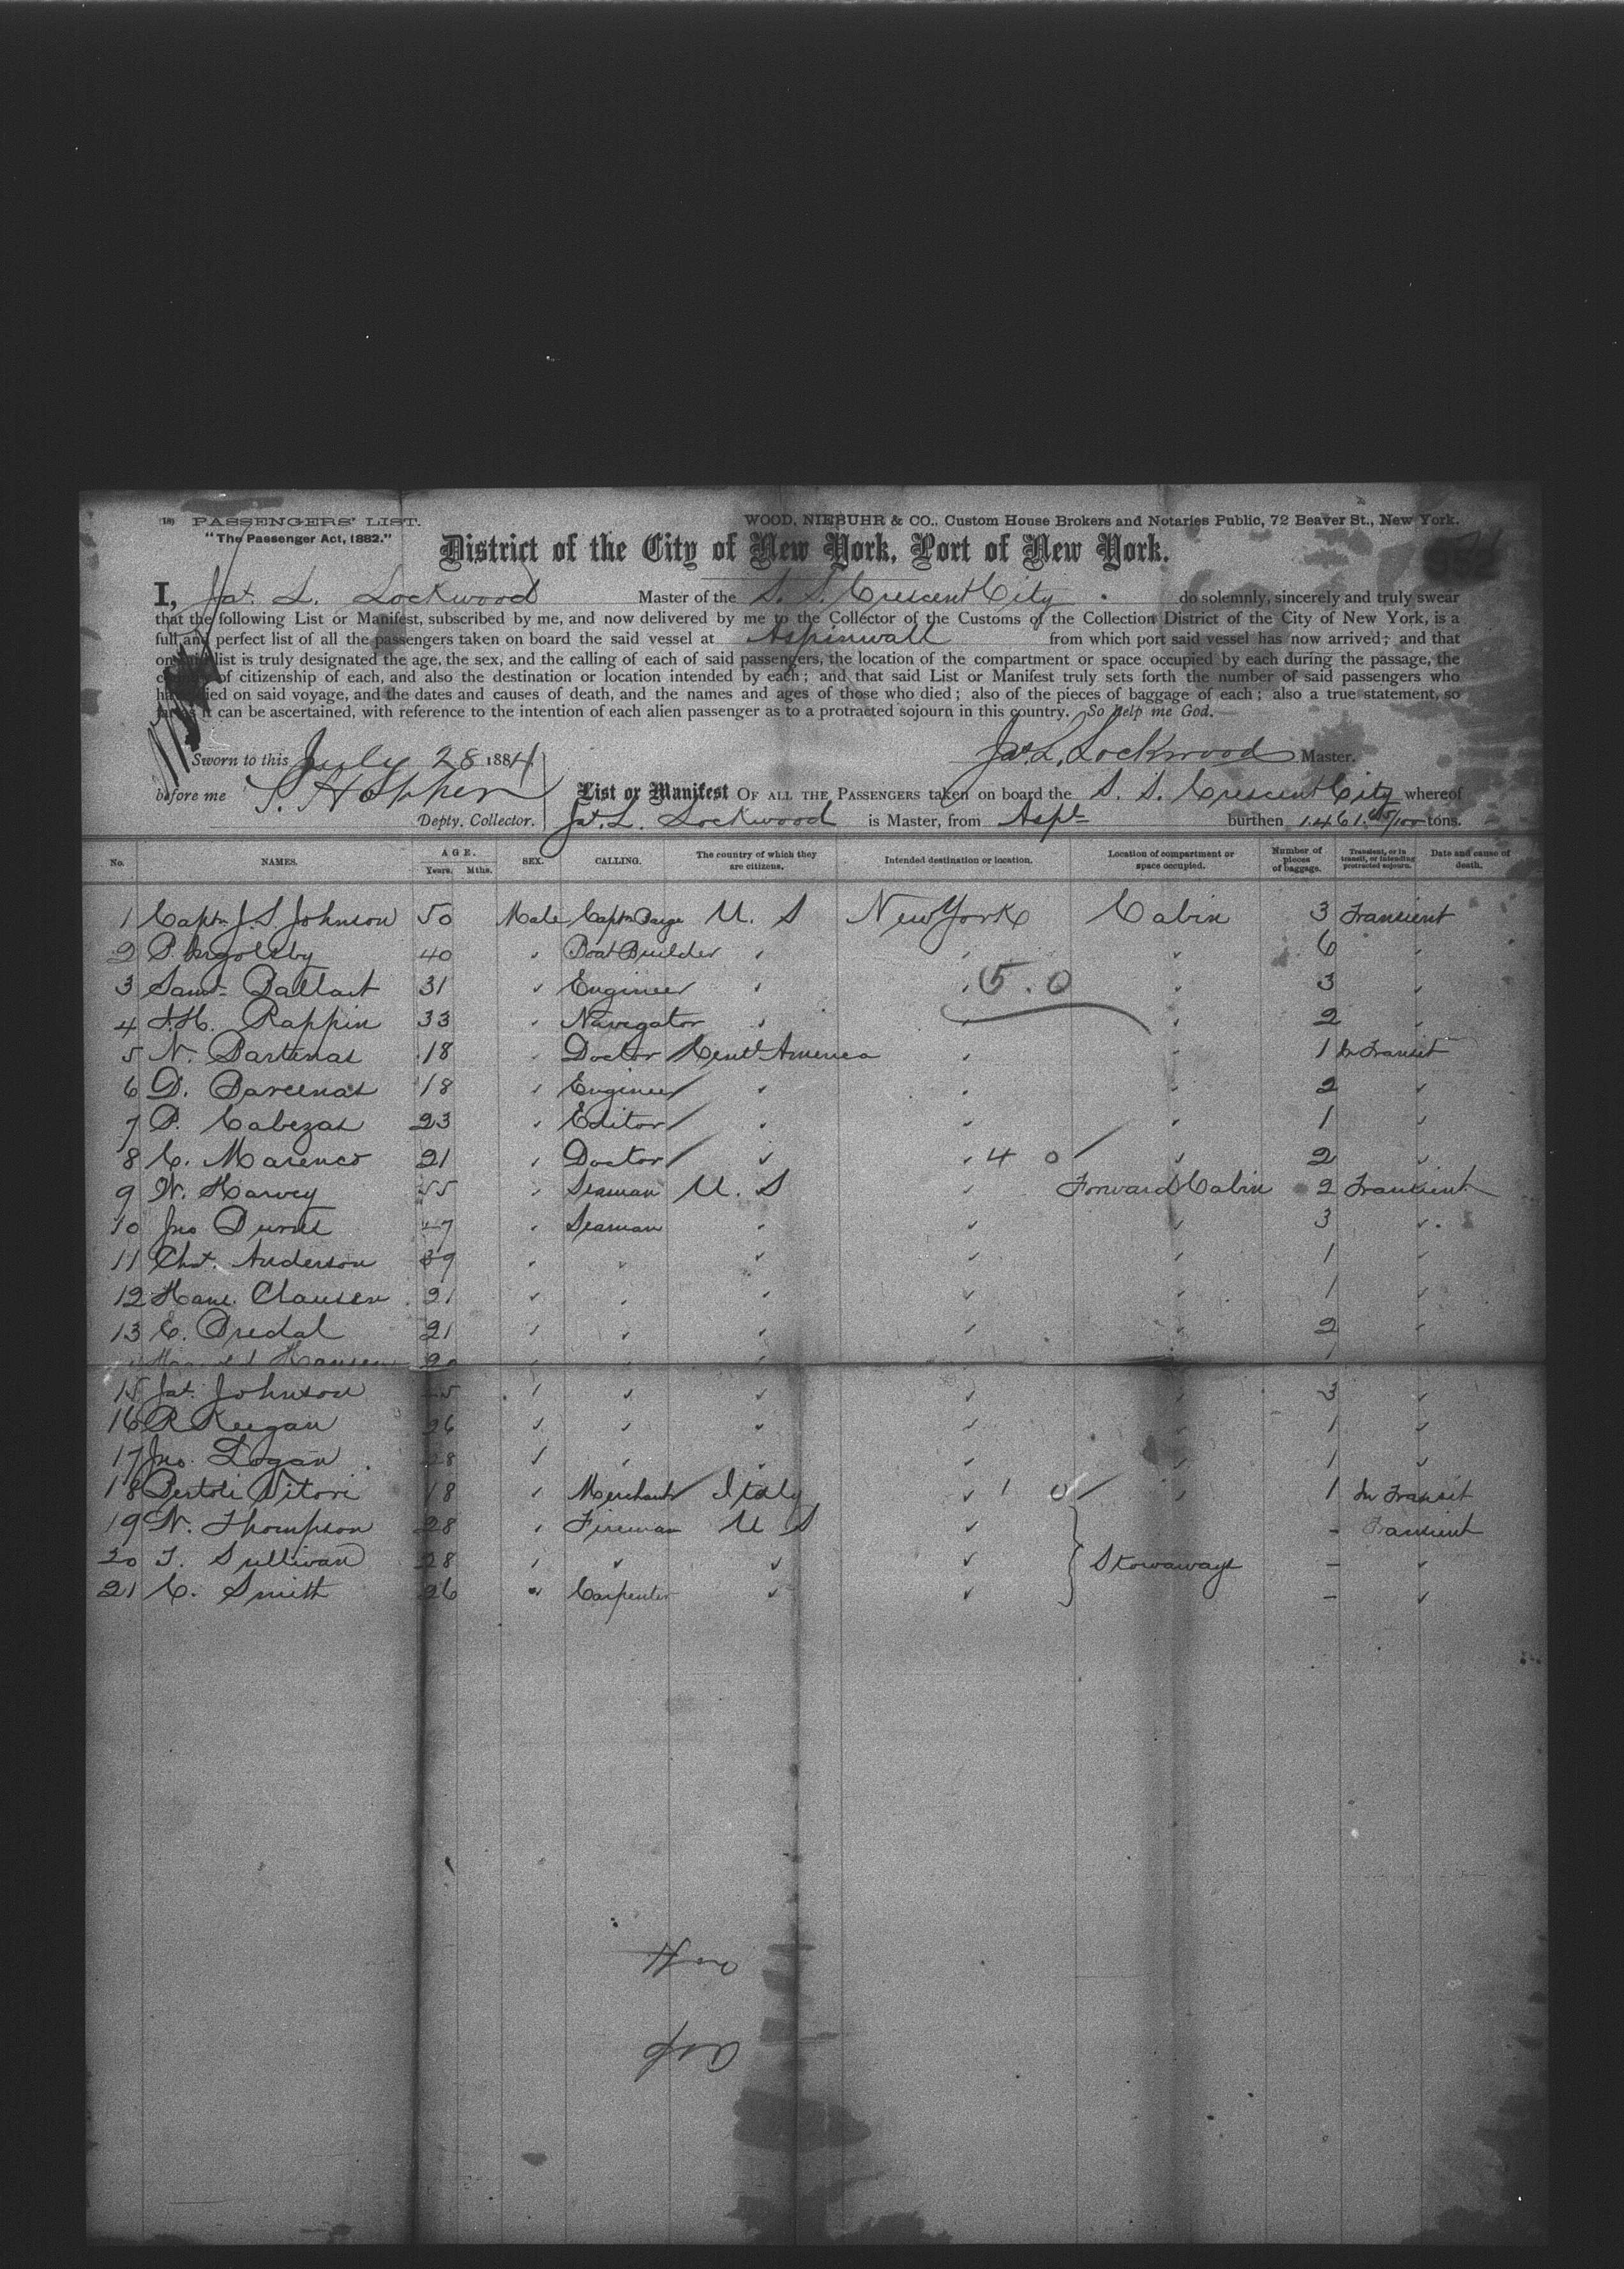 18) PASSENGERS' LIST.
WOOD, NIEBUHR & CO., Custom House Brokers and Notaries Public, 72 Beaver St., New York.
"The Passenger Act, 1882."
District of the City of New York, Port of New York.
I, Jas. L. Lockwood Master of the S. S. Crescent City do solemnly, sincerely and truly swear
that the following List or Manifest, subscribed by me, and now delivered by me to the Collector of the Customs of the Collection District of the City of New York, is a
full and perfect list of all the passengers taken on board the said vessel at Aspinwall from which port said vessel has now arrived; and that
on said list is truly designated the age, the sex, and the calling of each of said passengers, the location of the compartment or space occupied by each during the passage, the
country of citizenship of each, and also the destination or location intended by each; and that said List or Manifest truly sets forth the number of said passengers who
have died on said voyage, and the dates and causes of death, and the names and ages of those who died; also of the pieces of baggage of each; also a true statement, so
far as it can be ascertained, with reference to the intention of each alien passenger as to a protracted sojourn in this country. So help me God.
Sworn to this July 28 1884 Jas. L. Lockwood Master.
before me S. Hopper
Depty. Collector.
List or Manifest OF ALL THE PASSENGERS taken on board the S. S. Crescent City whereof
Jas. L. Lockwood is Master, from Aspl burthen 1461. /100 tons.
No. NAMES. AGE. Years. Mths. SEX. CALLING. The country of which they are citizens. Intended destination or location. Location of compartment or space occupied. Number of pieces of baggage. Transient, or in transit, or intending protracted sojourn. Date and cause of death.
1 Captn. J. S. Johnson 50 Male Captn Barge U. S New York Cabin 3 Transient
2 P. 40 Boat Builder 6
3 Saml. Ballart 31 Engineer 5.0 3
4 H. Rappin 33 Navegator 2
5 N. Bartenas 18 Doctor Centl America 1 In Transit
6 D. Barcenas 18 Engineer 2
7 P. Cabezas 23 Editor 1
8 C. Marenco 21 Doctor 4 0 2
9 W. Harvey 55 Seaman U. S Forward Cabin 2 Transient
10 Jno 47 Seaman 3
11 Chs. Anderson 39 1
12 Hans. Clausen 21 1
13 C. Predal 21 2
Hansen 20 1
15 Jas. Johnson 3
16 R Keegan 26 1
17 Jno. Logan 28 1
18 Bertoli Vitori 18 Merchant Italy 1 0 1 In Transit
19 W. Thompson 28 Fireman U S - Transient
20 T. Sullivan 28 Stowaways -
21 C. Smith 26 Carpenter -